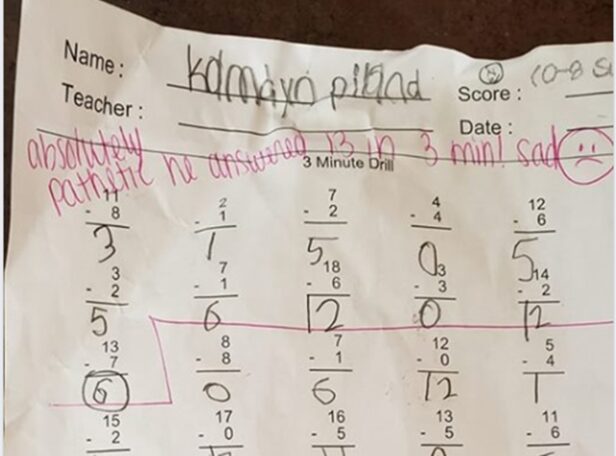 Name: Kamdyn piland Score:
Teacher: Date:
absolutely
pathetic he answered 13 in 3 min! sad
3 Minute Drill
11 2 7 4 12
- 8 - 1 - 2 - 4 - 6
3 1 5 0 5
3 7 18 3 14
- 2 - 1 - 6 - 3 - 2
5 6 12 0 12
13 8 7 12 5
- 7 - 8 - 1 - 0 - 4
6 0 6 12 1
15 17 16 13 11
- 2 - 0 - 5 - 5 - 6